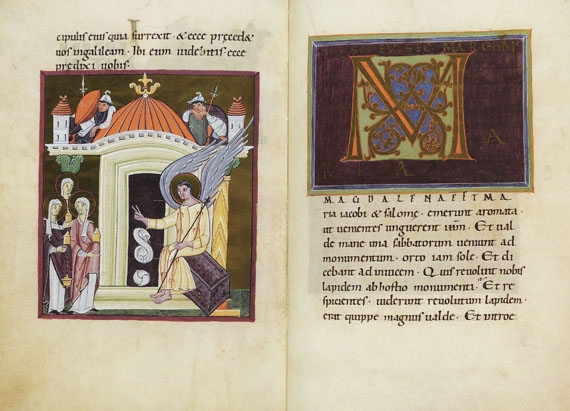 cipulis eius quia surrexit · & ecce precedæ
uos ingalileam · Ibi eum uidebitis · ecce
predixi uobis ·
SEC MARCUM
M
A
R I A
MAGDALENA ET MA
ria iacobi & salome · emerunt aromata ·
ut uenientes unguerent ihm · Et ual
de mane una sabbatorum ueniunt ad
monumentum · orto iam sole · Et di
cebant ad inuicem · Quis reuoluit nobis
lapidem ab hostio monumenti · Et re
spicientes · uiderunt reuolutum lapidem ·
erat quippe magnus ualde · Et introe